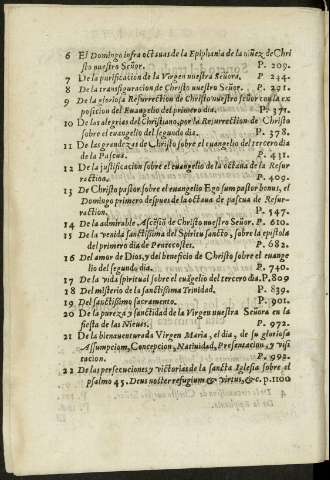 6 El Domingo infra octauas de la Epiphania de la niñez de Chri
sto nuestro Señor. P. 209.
7 De la purificacion de la Virgen nuestra Señora. P 244.
8 De la transfiguracion de Christo nuestro Señor. P. 291.
9 De la gloriosa Resurrection de Christo nuestro señor con la ex
posicion del Euangelio del primero dia. P. 371.
10 De las alegrias del Christiano, por la Resurrection de Christo
sobre el euangelio del segundo dia. P. 378.
11 De las grandezas de Christo sobre el euangelio del tercero dia
de la Pascua. P. 431.
12 De la justificacion sobre el euangelio de la octaua de la Resur
rection. P. 409.
13 De Christo pastor sobre el euangelio Ego sum pastor bonus, el
Domingo primero despues de la octaua de pascua de Resur-
rection. P. 547.
14 De la admirable Ascësiõ de Christo nuestro Señor. P. 610.
15 De la venida sanctissima del Spiritu sancto, sobre la epistola
del primero dia de Pentecostes. P. 682.
16 Del amor de Dios, y del beneficio de Christo sobre el euange
lio del segundo dia. P. 740.
17 De la vida spiritual sobre el euãgelio del tercero dia. P. 809
18 Del misterio de la sanctissima Trinidad. P. 839.
19 Del sanctissimo sacramento. P. 901.
20 De la pureza y sanctidad de la Virgen nuestra Señora en la
fiesta de las Nieues. P. 972.
21 De la bienauenturada Virgen Maria, el dia, de su gloriosa
Assumpcion, Concepcion, Natiuidad, Presentacion, y visi
tacion. P. 993.
22 De las persecuciones y victorias de la sancta Iglesia sobre el
psalmo 45. Deus noster refugium & virtus, &c. p. 1100